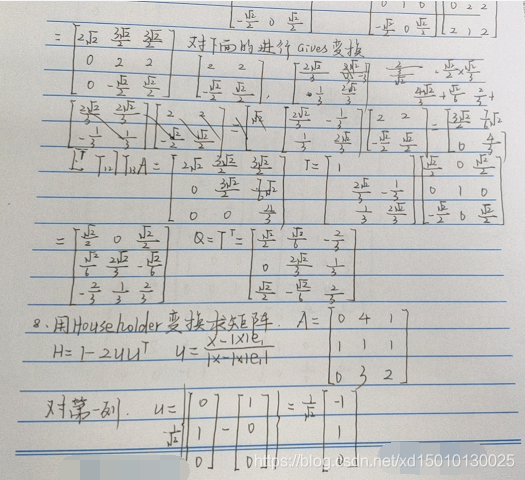 -√2/2 0 √2/2
0 1 0
-√2/2 0 √2/2
0 2 2
2 1 2
= [2√2 3√2/2 3√2/2; 0 2 2; 0 -√2/2 √2/2] 对下面的进行Gives变换
[2 2; -√2/2 √2/2]
[2√2/3 -1/3; 1/3 2√2/3] [2 2; -√2/2 √2/2] = [3√2/2 7/6√2; 0 4/3]
T₁₃A = [2√2 3√2/2 3√2/2; 0 3√2/2 7/6√2; 0 0 4/3] T = [2√2/3 -1/3; 1/3 2√2/3] [√2/2 0 √2/2; 0 1 0; -√2/2 0 √2/2]
= [√2/2 0 √2/2; √2/6 2√2/3 -√2/6; -2/3 1/3 2/3] Q=Tᵀ= [√2/2 √2/6 -2/3; 0 2√2/3 1/3; √2/2 -√2/6 2/3]
8、用Householder变换求矩阵. A= [0 4 1; 1 1 1; 0 3 2]
H=1-2uuᵀ u= x-|x|e₁/|x-|x|e₁|
对第一列. u= 1/√2 {[0; 1; 0] - [1; 0; 0]} = 1/√2 [-1; 1; 0]
https://blog.csdn.net/xd15010130025